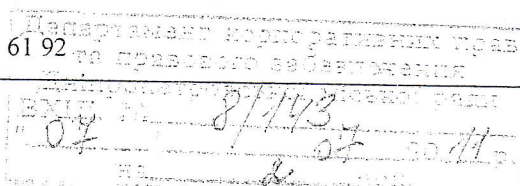 Департамент корпоративних прав
61 92
та правового забезпечення
ВХІД. № 8/143
" 07 " 07 2011 р.
на 2